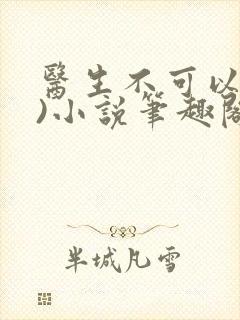 醫生不可以
)小說筆趣閣
半城凡雪